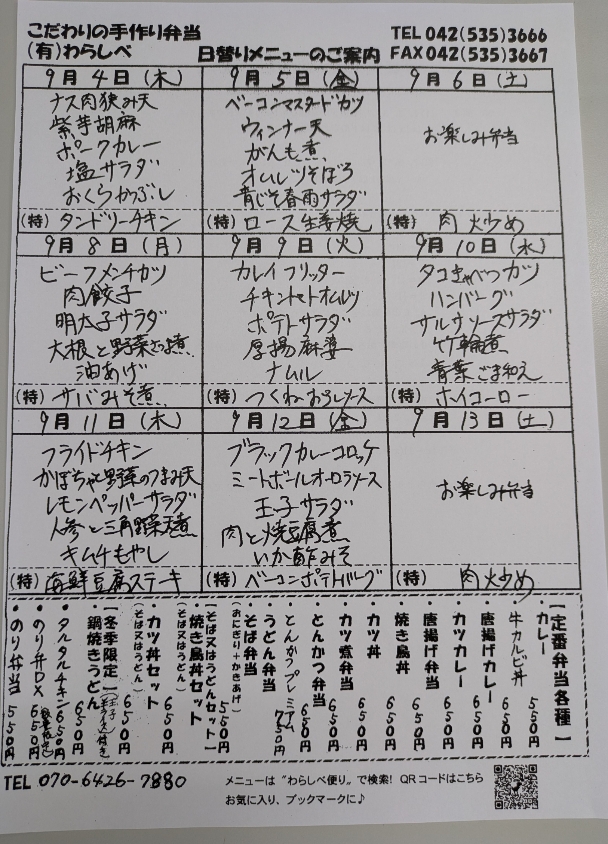 こだわりの手作り弁当
(有)わらしべ
日替りメニューのご案内
TEL 042(535)3666
FAX 042(535)3667
9月4日(木)
ナス肉狭み天
紫芋胡麻
ポークカレー
塩サラダ
おくらかつぶし
(特)タンドリーチキン
9月5日(金)
ベーコンマスタードカツ
ウィンナー天
がんも煮
オムレツそぼろ
青じそ春雨サラダ
(特)ロース生姜焼
9月6日(土)
お楽しみ弁当
(特)肉炒め
9月8日(月)
ビーフメンチカツ
肉餃子
明太子サラダ
大根と野菜煮
油あげ
(特)サバみそ煮
9月9日(火)
カレイフリッター
チキントマトオムレツ
ポテトサラダ
厚揚麻婆
ナムル
(特)つくねおろしソース
9月10日(水)
タコキャベツカツ
ハンバーグ
サルサソースサラダ
竹輪煮
青菜ごま和え
(特)ホイコーロー
9月11日(木)
フライドチキン
かぼちゃと野菜のつまみ天
レモンペッパーサラダ
人参と三角煮
キムチもやし
(特)海鮮豆腐ステーキ
9月12日(金)
ブラックカレーコロッケ
ミートボールオーロラソース
玉子サラダ
肉と焼豆腐煮
いか酢みそ
(特)ベーコンポテトバーグ
9月13日(土)
お楽しみ弁当
(特)肉炒め
【定番弁当各種】
・カレー 550円
・牛カルビ丼 650円
・唐揚げカレー 650円
・カツカレー 650円
・唐揚げ弁当 650円
・焼き鳥丼 650円
・カツ丼 650円
・カツ煮弁当 650円
・とんかつ弁当 650円
・とんかつプレミアム 750円
・うどん弁当
・そば弁当
(おにぎり+かきあげ) 550円
【そば又はうどんセット】
・焼き鳥丼セット
(そば又はうどん) 650円
・カツ丼セット
(そば又はうどん) 650円
【冬季限定】
・鍋焼きうどん 650円
・タルタルチキン 650円
・のり弁DX 650円
・のり弁当 550円
TEL 070-6426-7880
メニューは"わらしべ便り"で検索! QRコードはこちら
お気に入り、ブックマークに♪